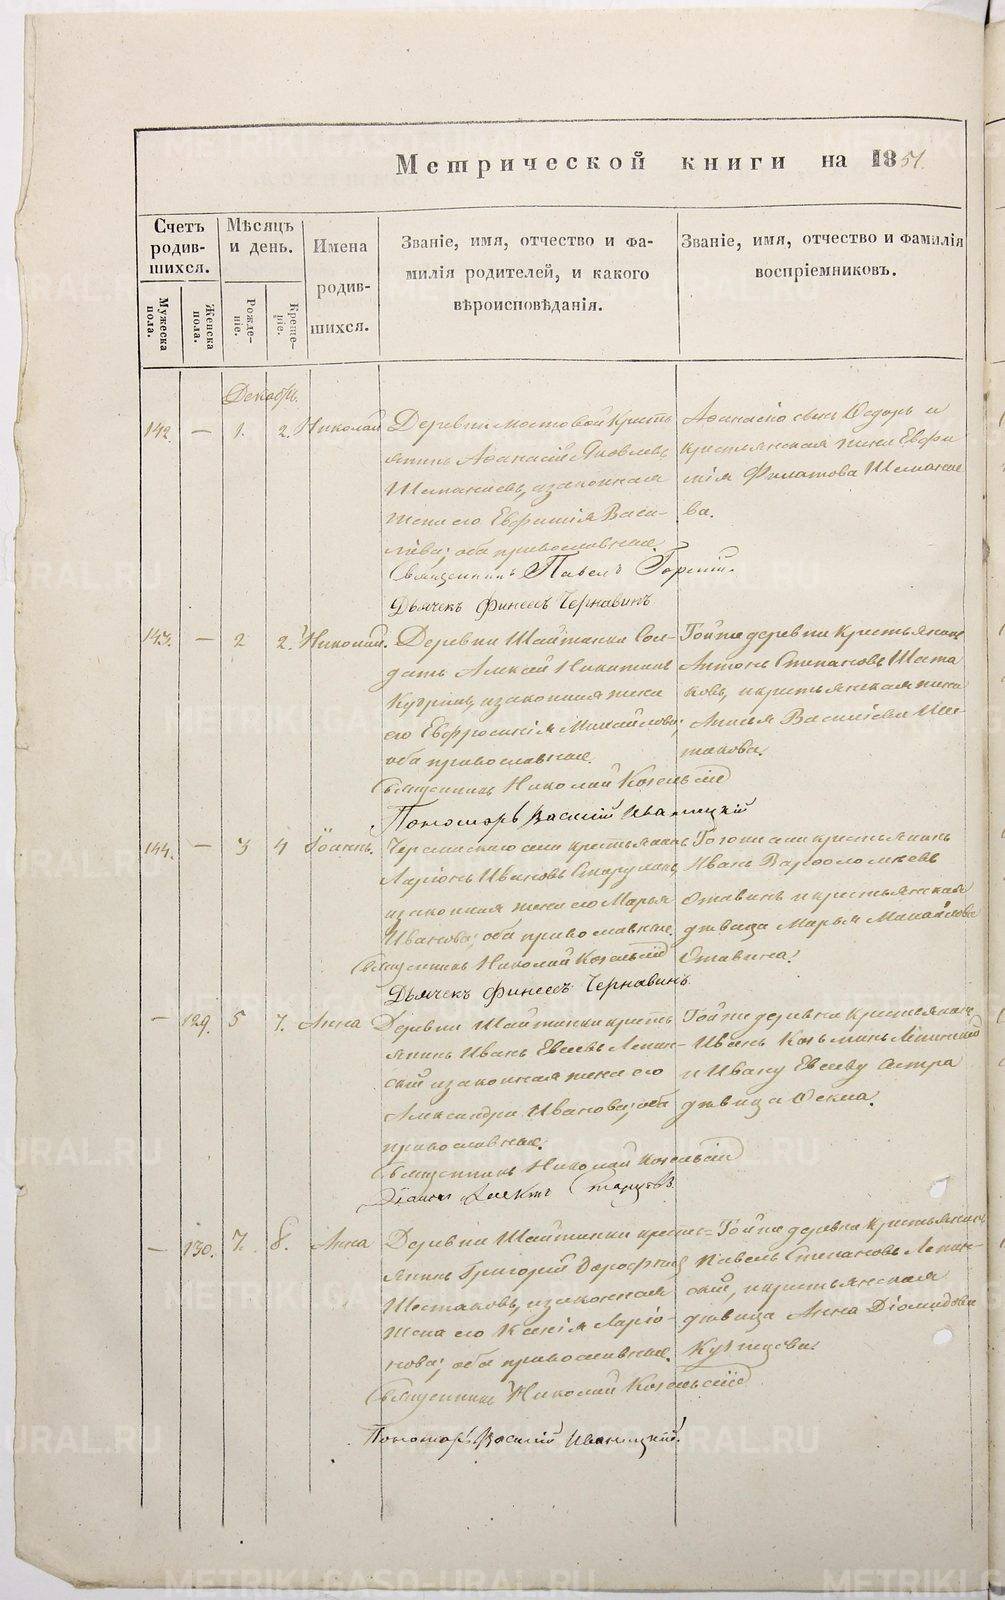 Метрической книги на 1851.
Счетъ родив-шихся.
Мужеска пола.
Женска пола.
Мѣсяцъ и день.
Рожде-ніе.
Креще-ніе.
Имена родив-шихся.
Званіе, имя, отчество и фа-
милія родителей, и какого
вѣроисповѣданія.
Званіе, имя, отчество и фамилія
воспріемниковъ.
Декабрь.
142. — 1. 2. Николай
Деревни Мостовой кресть
янинъ Аѳанасій Яковлевъ
и законная
жена его Евфимія Васи-
лiева; оба православные.
Священникъ Павелъ Горный.
Дьячекъ Финеесъ Чернавинъ
сынъ Ѳедоръ и
крестьянская жена Евфи
мія Филатова
ва.
143. — 2 2. Николай.
Деревни Шайтанки Сол-
датъ Алексѣй Никитинъ
и законная жена
его Евфросинія Михайлова;
оба православные.
Священникъ Николай
Пономарь Василій Иваницкій
Той же деревни крестьянинъ
Антонъ Степановъ Шеста
ковъ, и крестьянская жена
Васильева Ше-
стакова.
144. — 3 4 Іоаннъ.
села крестьянинъ
Ларіонъ Ивановъ
и законная жена его Марья
Иванова; оба православные.
Священникъ Николай
Дьячекъ Финеесъ Чернавинъ
Того же села крестьянинъ
Иванъ Варѳоломеевъ
и крестьянская
дѣвица Марья Михайлова
— 129. 5 7. Анна
Деревни Шайтанки кресть
янинъ Иванъ Евсеевъ Лепин-
скій и законная жена его
Александра Иванова; оба
православные.
Священникъ Николай
Той же деревни крестьянинъ
Иванъ Козьминъ Лепинскій
и Ивану Евсееву сестра
дѣвица Ѳекла.
— 130. 7. 8. Анна
Деревни Шайтанки кресть=
янинъ Григорій Дороѳеевъ
Шестаковъ, и законная
жена его Ксенія Ларіо-
нова; оба православные.
Священникъ Николай
Пономарь Василій Иваницкій.
Той же деревни крестьянинъ
Павелъ Степановъ Лепин-
скій, и крестьянская
дѣвица Анна Діомидова
METRIKI.GASO-URAL.RU